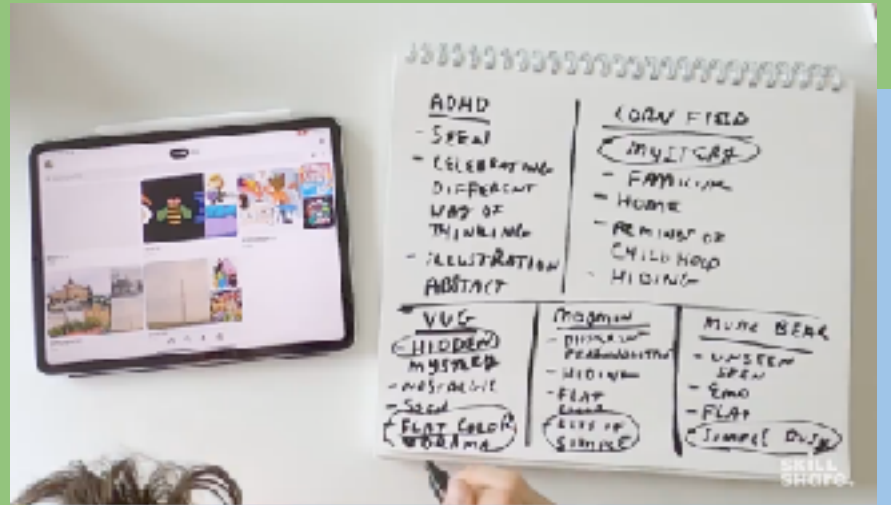 ADHD
- SEEN
- CELEBRATING
DIFFERENT
WAY OF
THINKING
- ILLUSTRATION
ABSTRACT
CORN FIELD
MYSTERY
- FAMILIAR
- HOME
- REMINDS OF
CHILDHOOD
- HIDING
VUG
- HIDDEN
MYSTERY
- NOSTALGIC
- SEEN
- FLAT COLOR
DRAMA
MADMAN
- DIFFERENT
PERSONALITIES
- HIDING
- FLAT
SIMPLE
BEAR
- UNSEEN
SEEN
- EMO
- FLAT
- SIMPLE
SKILL
SHARE.